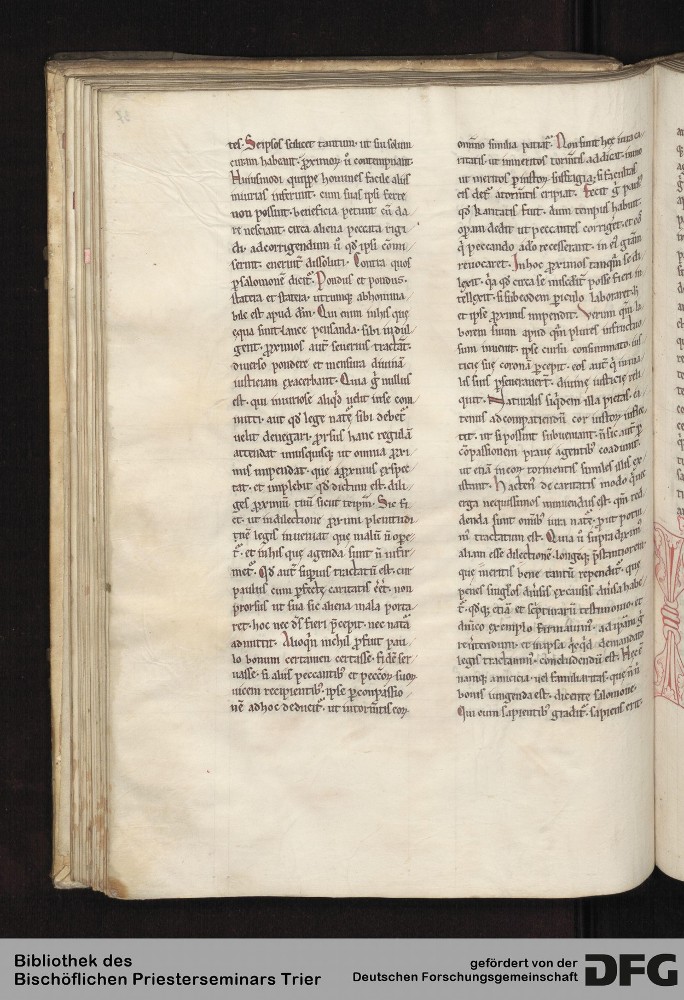 tes. Seipsos scilicet tantum. ut sui solum
curam habeant. proximorum
Huiusmodi quippe homines facile aliis
iniurias inferunt. cum suas ipsi ferre
non possunt. beneficia petunt cū da
re nesciant. circa aliena peccata rigi
di. ad corrigendum ū qd ipsi cōmi
serunt. dissoluti. Contra quos
p salomonē dicit᷑. Pondus et pondus.
statera et statera. utrumque abhomina
bile est apud dm̄. Qui enim in his quę
ęqua sunt lance pensanda. sibi indul
gent. proximos aut̄ seuerius tractāt.
diuerso pondere et mensura diuinā
iusticiam exacerbant. Quia g̃ nullus
est. qui iniuriose aliqd uelit in se com
mitti. aut qd lege natę sibi debet᷑
uelit denegari. prorsus hanc regulā
attendat unusquisque. ut omnia proxi
mis impendat. que a proximis exspec
tat. et implebit qd dictum est. dili
ges proximū tuū sicut teipm̄. Sic fi
et. ut in dilectione proximi plenitudi
nē legis inueniat que malū n̄ ope
t᷑. et in his quę agenda sunt n̄ infir
met᷑. Qd aut̄ superius tractatū est. cur
paulus cum pfectę caritatis eēt. non
prorsus ut sua sic aliena mala porta
ret. hoc nec ds̄ fieri pcepit. nec natā
admittit. Alioqn nichil pfuit pau
lo bonum certamen certasse. fidē ser
uasse. si aliis peccantib; et peccoꝝ suoꝝ
uicem recipientib; ipse p conpassio
nē ad hoc deducit᷑. ut in tormtis eoꝝ
omnino similia patiat᷑. Non sinit hęc iura ca
ritatis. ut inmeritos tormtis addicat. immo
ut meritos p iustoꝝ suffragia. si facultas
eis det᷑ a tormtis eripiat. Fecit g̃ paul᷒
qd karitatis fuit. dum tempus habuit.
opam dedit ut peccantes corriget. et eos
q̇ peccando a do recesserant. in ei᷒ grām
reuocaret. In hoc proximos tanqm se di
lexit. qa qd circa se misedit posse fieri in
tellexit. si sub eodem piculo laboraret.
et ipse proximis impendit. Verum qm la
borem suum apud qm plures infructuo
sum inuenit. ipse cursu consummato. ius
ticię suę coronā pcepit. eos aut̄ q̇ in ma
lis suis pseuerauert. diuinę iusticię reli
quit. Naturalis siqdem illa pietas. ea
tenus ad compatiendū cor iustoꝝ inflec
tit. ut si possint subueniant. n̄ sic aut̄ p
cōpassionem praue agentib; coadunit.
ut etiā in eoꝝ tormentis similes illis ex
istant. Hacten᷒ de caritatis modo qnē
erga nequissimos minuendus est. qm red
denda sunt omib; iura natę. put potui
m᷒ tractatum est. Quia ū supra diximus
aliam esse dilectionē. longeque pstantiorem
que meritis bene tantū rependit᷑. que
penes singlos diuisis ex causis diuisa habe
t᷑. qdque etiā et scpturaꝝ testimonio. et
dn̄ico exemplo firmauim᷒.
rendum. et in ipsa qcqd demandato
legis tractauim᷒. concludendū est. Hęc ē
namque amicicia. uel familiaritas. quę n̄ n̄
bonis iungenda est. dicente salomone.
Qui cum sapientib; gradit᷑. sapiens erit.
Bibliothek des
Bischöflichen Priesterseminars Trier
gefördert von der
Deutschen Forschungsgemeinschaft
DFG